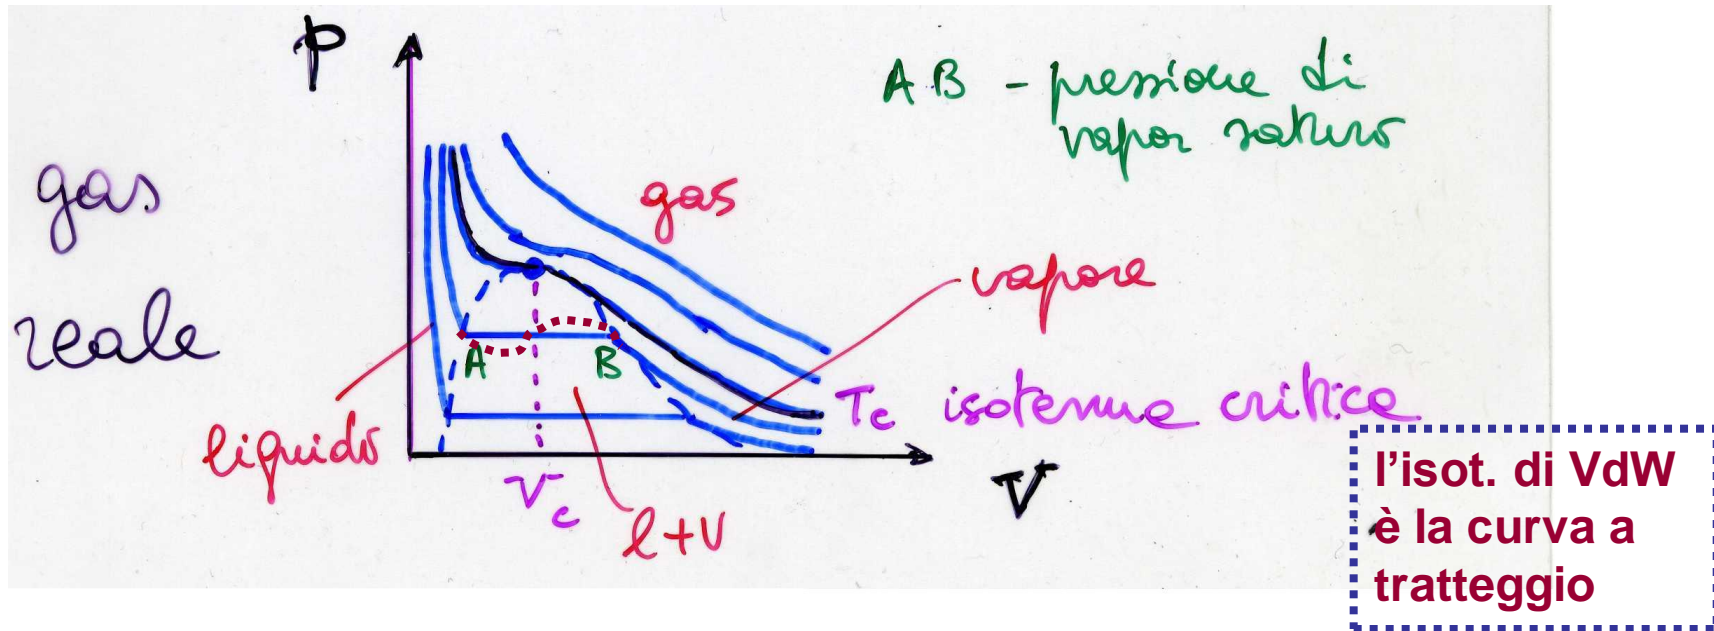 p
A B - pressione di
vapor saturo
gas
reale
gas
vapore
A
B
Tc isoterma critica
liquido
Vc
l+V
V
l'isot. di VdW
è la curva a
tratteggio